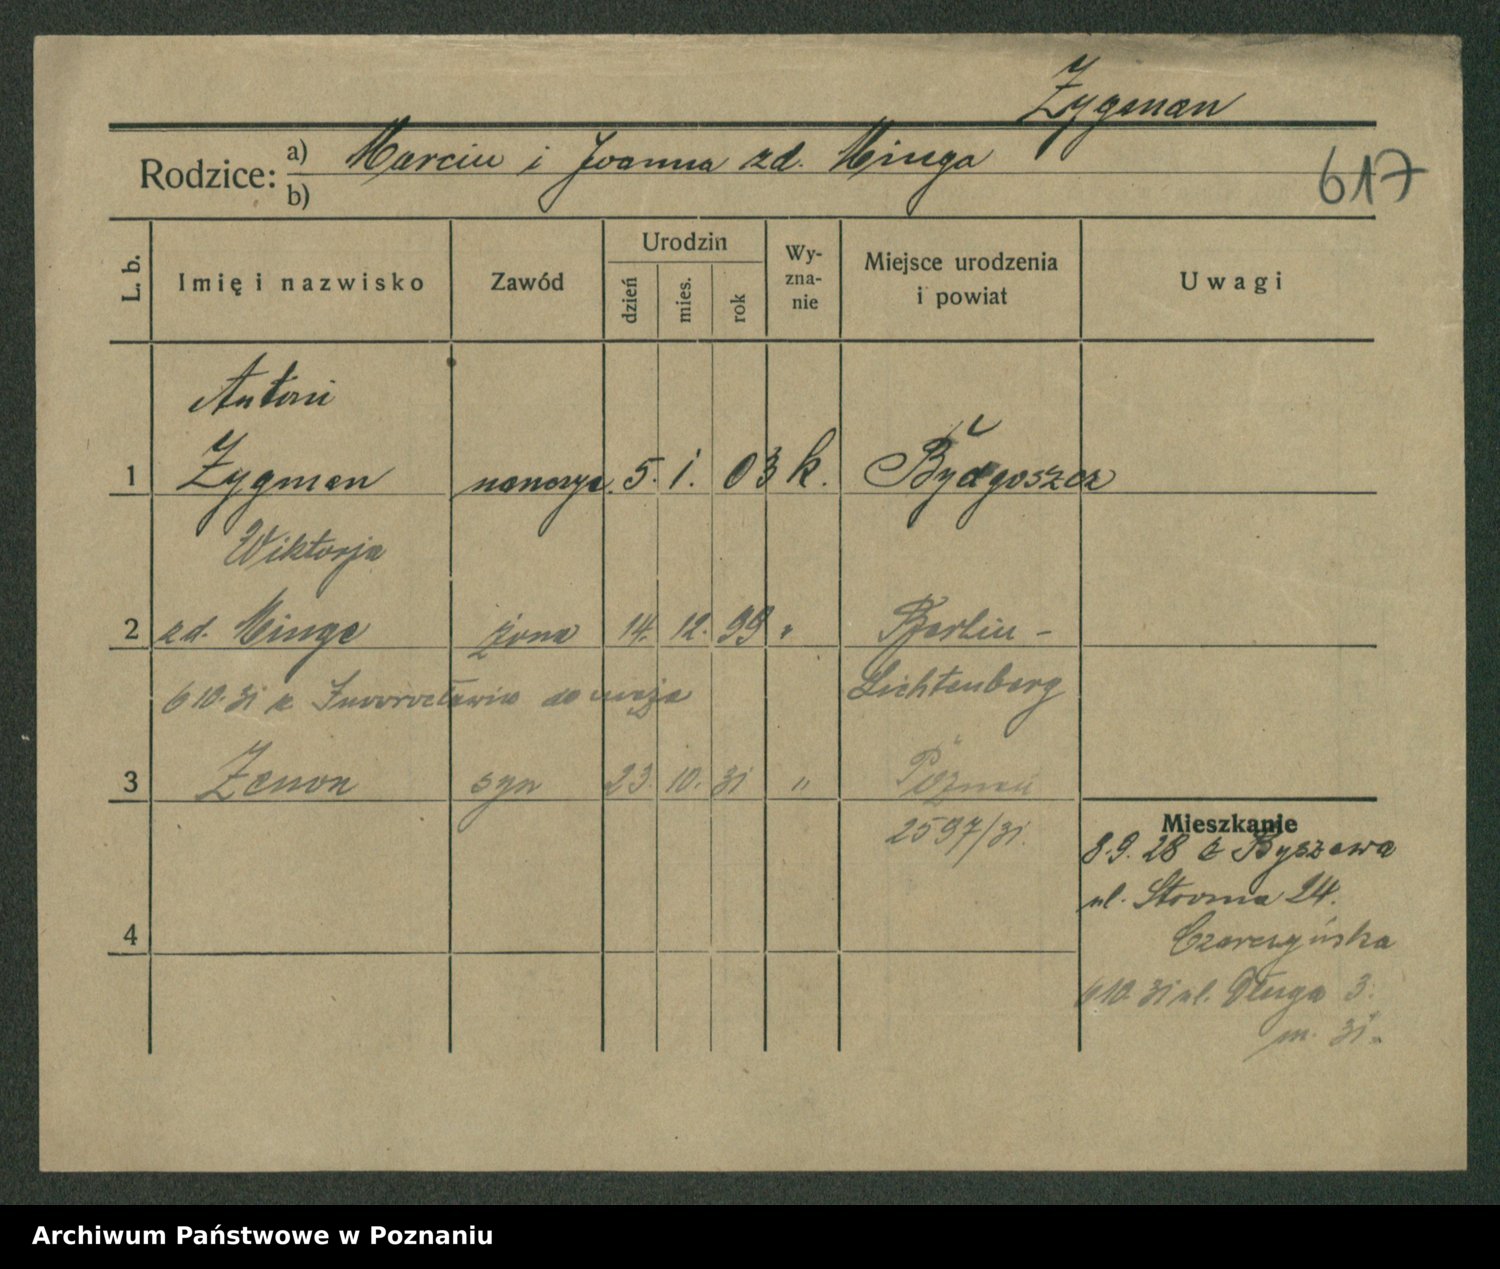 Zygman
Rodzice: a) Marcin i Joanna zd. Minga
b)
617
L. b. Imię i nazwisko Zawód Urodzin dzień mies. rok Wyznanie Miejsce urodzenia i powiat Uwagi
Antoni
1 Zygman 5. 1. 03 k. Bydgoszcz
Wiktorja
2 zd. Minge żona 14. 12. 99 " Berlin -
6 10. 31 z Inowrocławia do męża Lichtenberg
3 Zenon syn 23. 10. 31 " Poznań
2597/31.
Mieszkanie
8.9. 28 z Byszewa
ul. Stroma 24.
4
Czarczyńska
6 10. 31 ul. Długa 3.
m. 31.
Archiwum Państwowe w Poznaniu